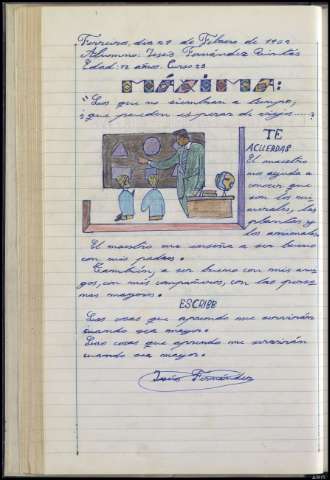 Ferreira, día 29 de Febrero de 1962
Alumno: Jesús Fernández Quintás
Edad: 12 años. Curso 23
MÁXIMA:
"Los que no siembran a tiempo,
¿que pueden esperar de viejos.....?
TE
ACUERDAS
El maestro
nos ayuda a
conocer que
son los mi-
nerales, las
plantas y
los animales
El maestro me enseña a ser bueno
con mis padres.
También, a ser bueno con mis ami-
gos, con mis compañeros, con las perso-
nas mayores.
ESCRIBE
Las cosas que aprendo me servirán
cuando sea mayor.
Las cosas que aprendo me servirán
cuando sea mayor.
Jesús Fernández